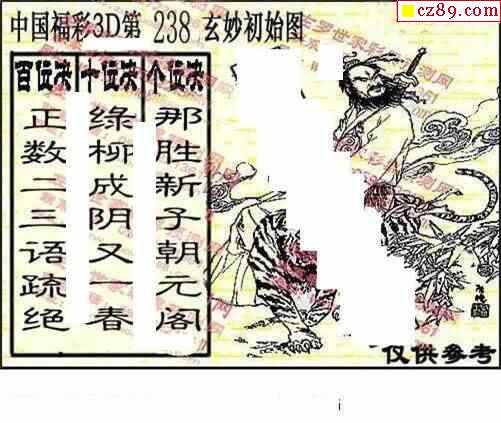 cz89.com
中国福彩3D第 238 玄妙初始图
百位决 十位决 个位决
正数二三语疏绝
绿柳成阴又一春
那胜新子朝元阁
仅供参考
i